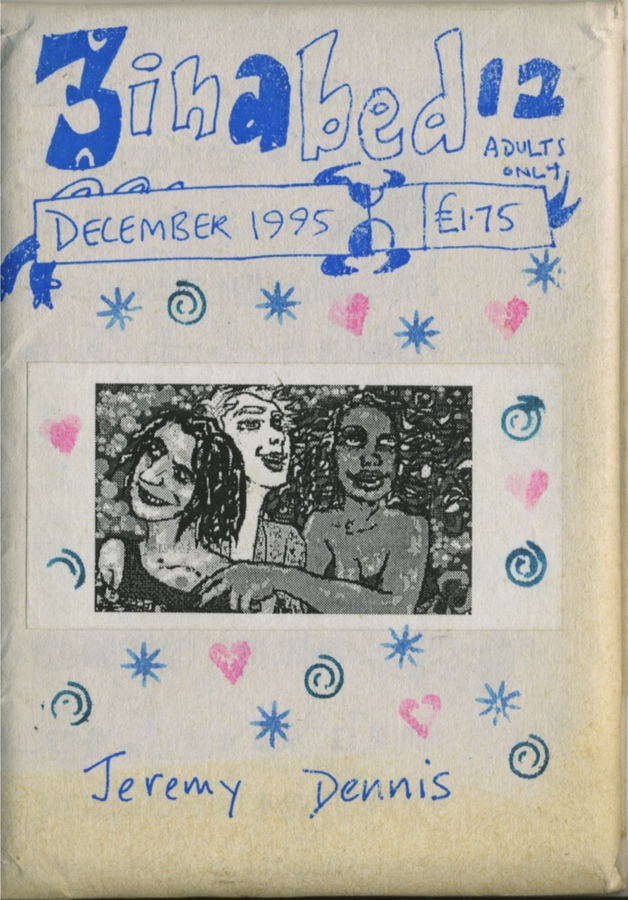 3 in a bed 12
ADULTS
ONLY
DECEMBER 1995 £1.75
Jeremy Dennis